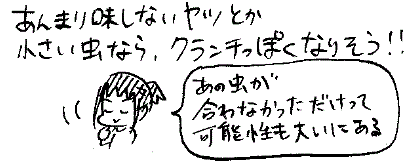 あんまり味しないヤツとか
小さい虫なら、クランチっぽくなりそう!!
あの虫が
合わなかっただけって
可能性も大いにある